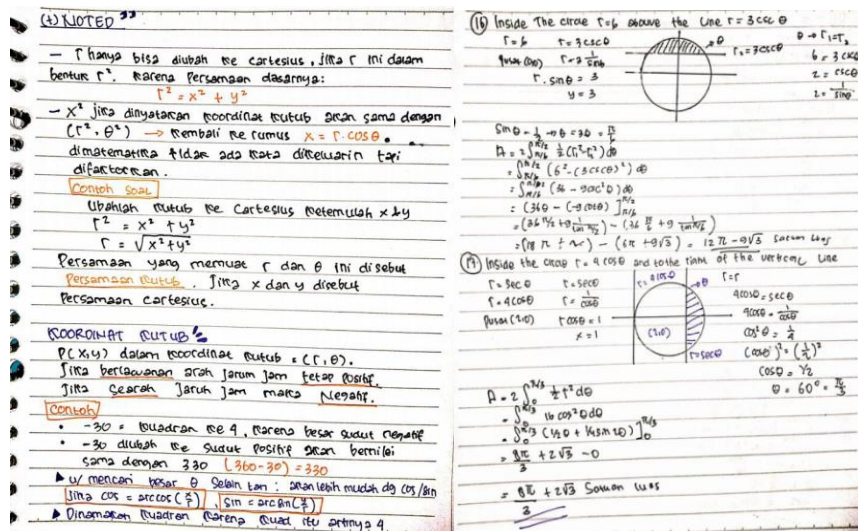 (+) NOTED "
— r hanya bisa diubah ke cartesius, jika r ini dalam
bentuk r². karena Persamaan dasarnya:
r² = x² + y²
— x² jika dinyatakan koordinat kutub akan sama dengan
(r², θ²) → kembali ke rumus x = r.cosθ.
dimatematika tidak ada kata dikeluarin tapi
difaktorkan.
Contoh soal
Ubahlah kutub ke Cartesius ketemulah x & y
r² = x² + y²
r = √x²+y²
Persamaan yang memuat r dan θ ini disebut
Persamaan kutub. Jika x dan y disebut
Persamaan cartesius.
KOORDINAT KUTUB
P(x,y) dalam koordinat kutub = (r,θ).
Jika berlawanan arah jarum jam tetap positif.
Jika searah Jaruh jam maka Negatif.
Contoh
• -30 = kuadran ke 4, karena besar sudut negatif
• -30 diubah ke sudut positif akan bernilai
sama dengan 330 (360-30) = 330
▶ u/ mencari besar θ selain tan : akan lebih mudah dg cos/sin
Jika cos = arc cos (x/r) , sin = arc sin (y/r)
▶ Dinamakan kuadran karena kuad itu artinya 4.
(16) Inside The circle r=6 above the line r = 3 csc θ
r=6 r=3cscθ
Pusat (0,0) r=3 1/sinθ
r. sinθ = 3
y = 3
θ
r₂=3cscθ
θ → r₁=r₂
6 = 3 cscθ
2 = cscθ
2 = 1/sinθ
Sin θ = 1/2 → θ = 30 = π/6
A = 2∫π/6 π/2 1/2 (r₁²-r₂²) dθ
= ∫π/6 π/2 (6² - (3cscθ)²) dθ
= ∫π/6 π/2 (36 - 9csc²θ) dθ
= (36θ - (-9cotθ) ]π/6 π/2
= (36 π/2 + 9 1/tan π/2) - (36 π/6 + 9 1/tan π/6)
= (18π + ~) - (6π + 9√3) = 12π - 9√3 Satuan luas
(17) Inside the circle r = 4 cosθ and to the right of the vertical line
r = sec θ r=secθ
r=4cosθ r = 1/cosθ
Pusat (2,0) r cosθ = 1
x = 1
r=4cosθ
θ
(2,0)
r=secθ
r=r
4cosθ = secθ
4cosθ = 1/cosθ
cos²θ = 1/4
(cosθ)² = (1/2)²
cosθ = 1/2
θ = 60° = π/3
A = 2∫0 π/3 1/2 r² dθ
= ∫0 π/3 16 cos²θ dθ
= ∫0 π/3 (1/2θ + 1/4 sin 2θ) ]0 π/3
= 8π/3 + 2√3 - 0
= 8π/3 + 2√3 Satuan luas